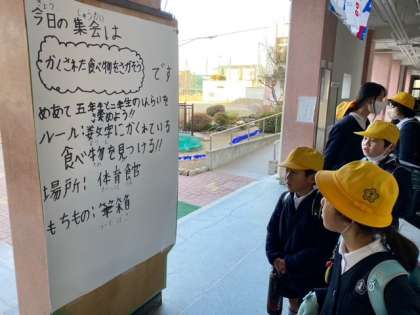 今日の集会は
きょう しゅうかい
かくされた食べ物をさがそう
です
めあて 五年生と二年生の
深めよう!!
ルール:教室にかくれている
食べ物を見つける!!
場所:体育館
もちもの:筆箱